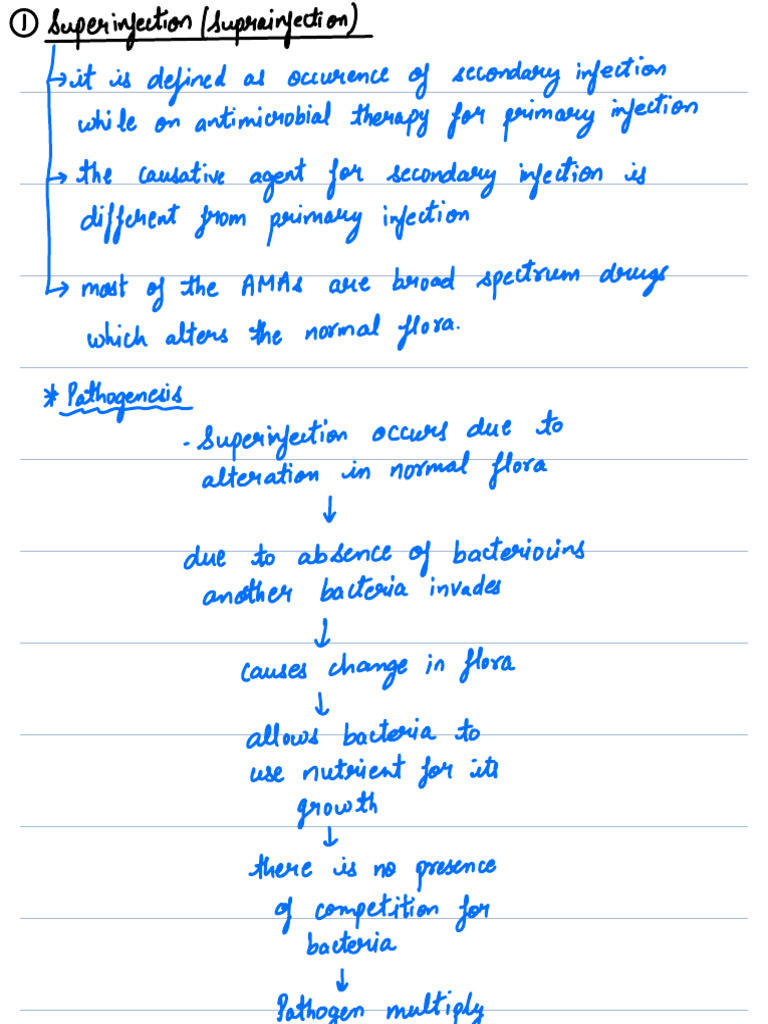 ① Superinfection (Suprainfection)
→ it is defined as occurence of secondary infection
while on antimicrobial therapy for primary infection
→ the causative agent for secondary infection is
different from primary infection
→ most of the AMAs are broad spectrum drugs
which alters the normal flora.
* Pathogenesis
- Superinfection occurs due to
alteration in normal flora
↓
due to absence of bacteriocins
another bacteria invades
↓
causes change in flora
↓
allows bacteria to
use nutrient for its
growth
↓
there is no presence
of competition for
bacteria
↓
Pathogen multiply